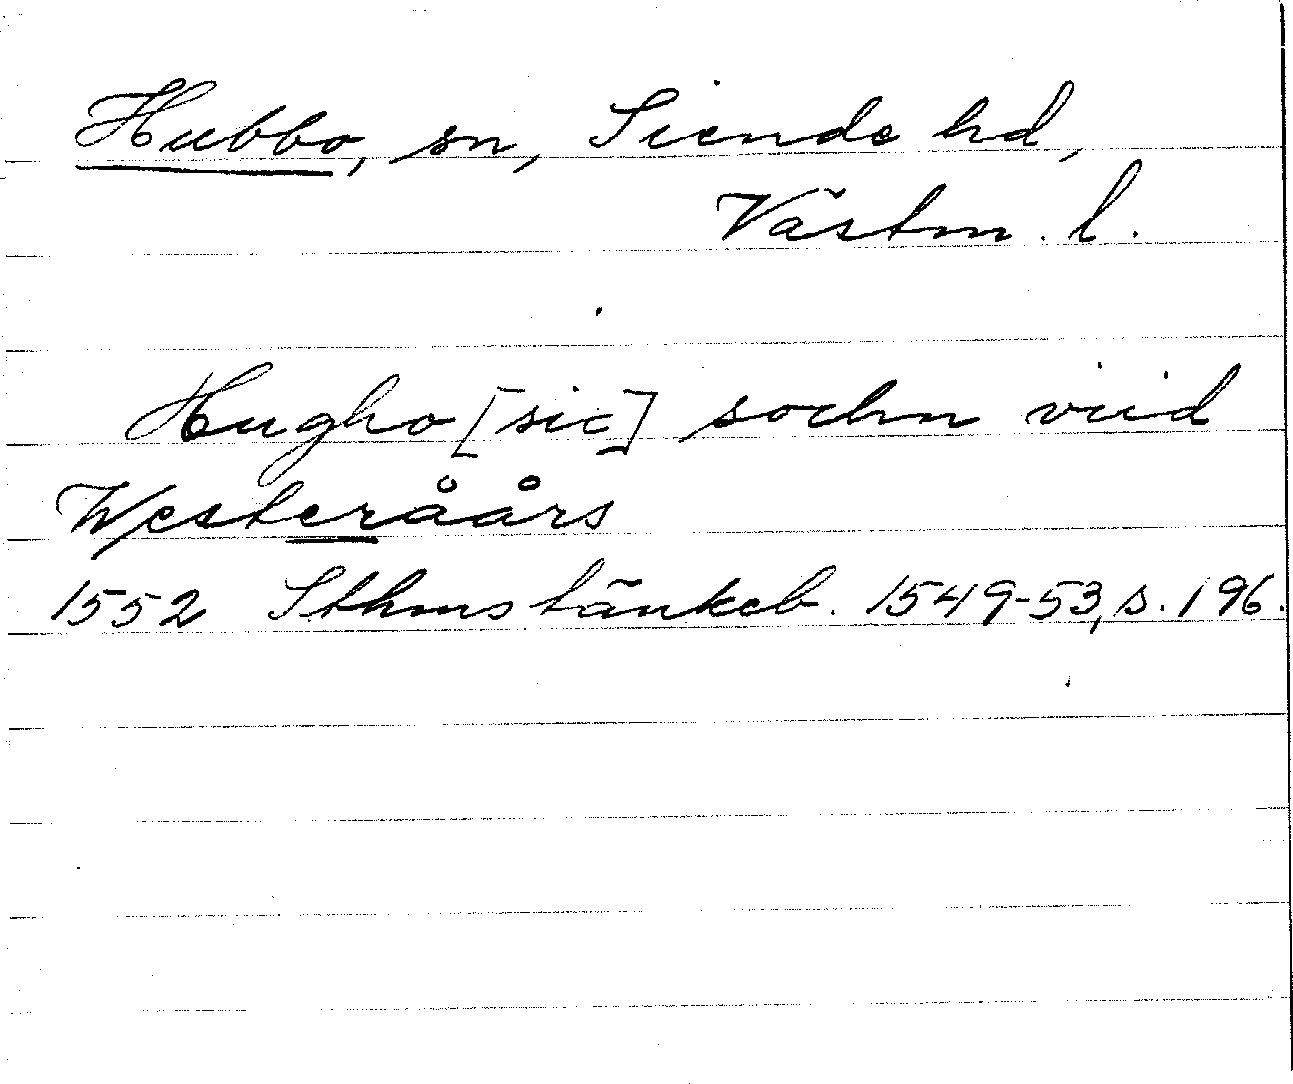 Hubbo, sn, Siende hd,
Västm. l.
Hugho [sic] sochn viid
Westeråårs
1552 Sthms tänkeb. 1549-53, s. 196.